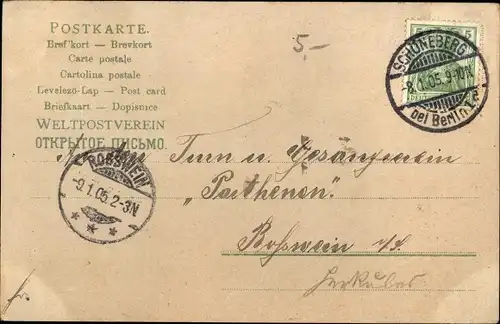 POSTKARTE.
Bref'kort — Brevkort
Carte postale
Cartolina postale
Levelező-Lap — Post card
Briefkaart — Dopisnice
WELTPOSTVEREIN
ОТКРЫТОЕ ПИСЬМО.
5,-
SCHÖNEBERG
8.1.05. 9-10N
bei Berlin 1.
5 5
ROSSWEIN
9.1.05. 2-3N
Turn u. Gesangverein
„Parthenon"
Roßwein i/S.
Herkules